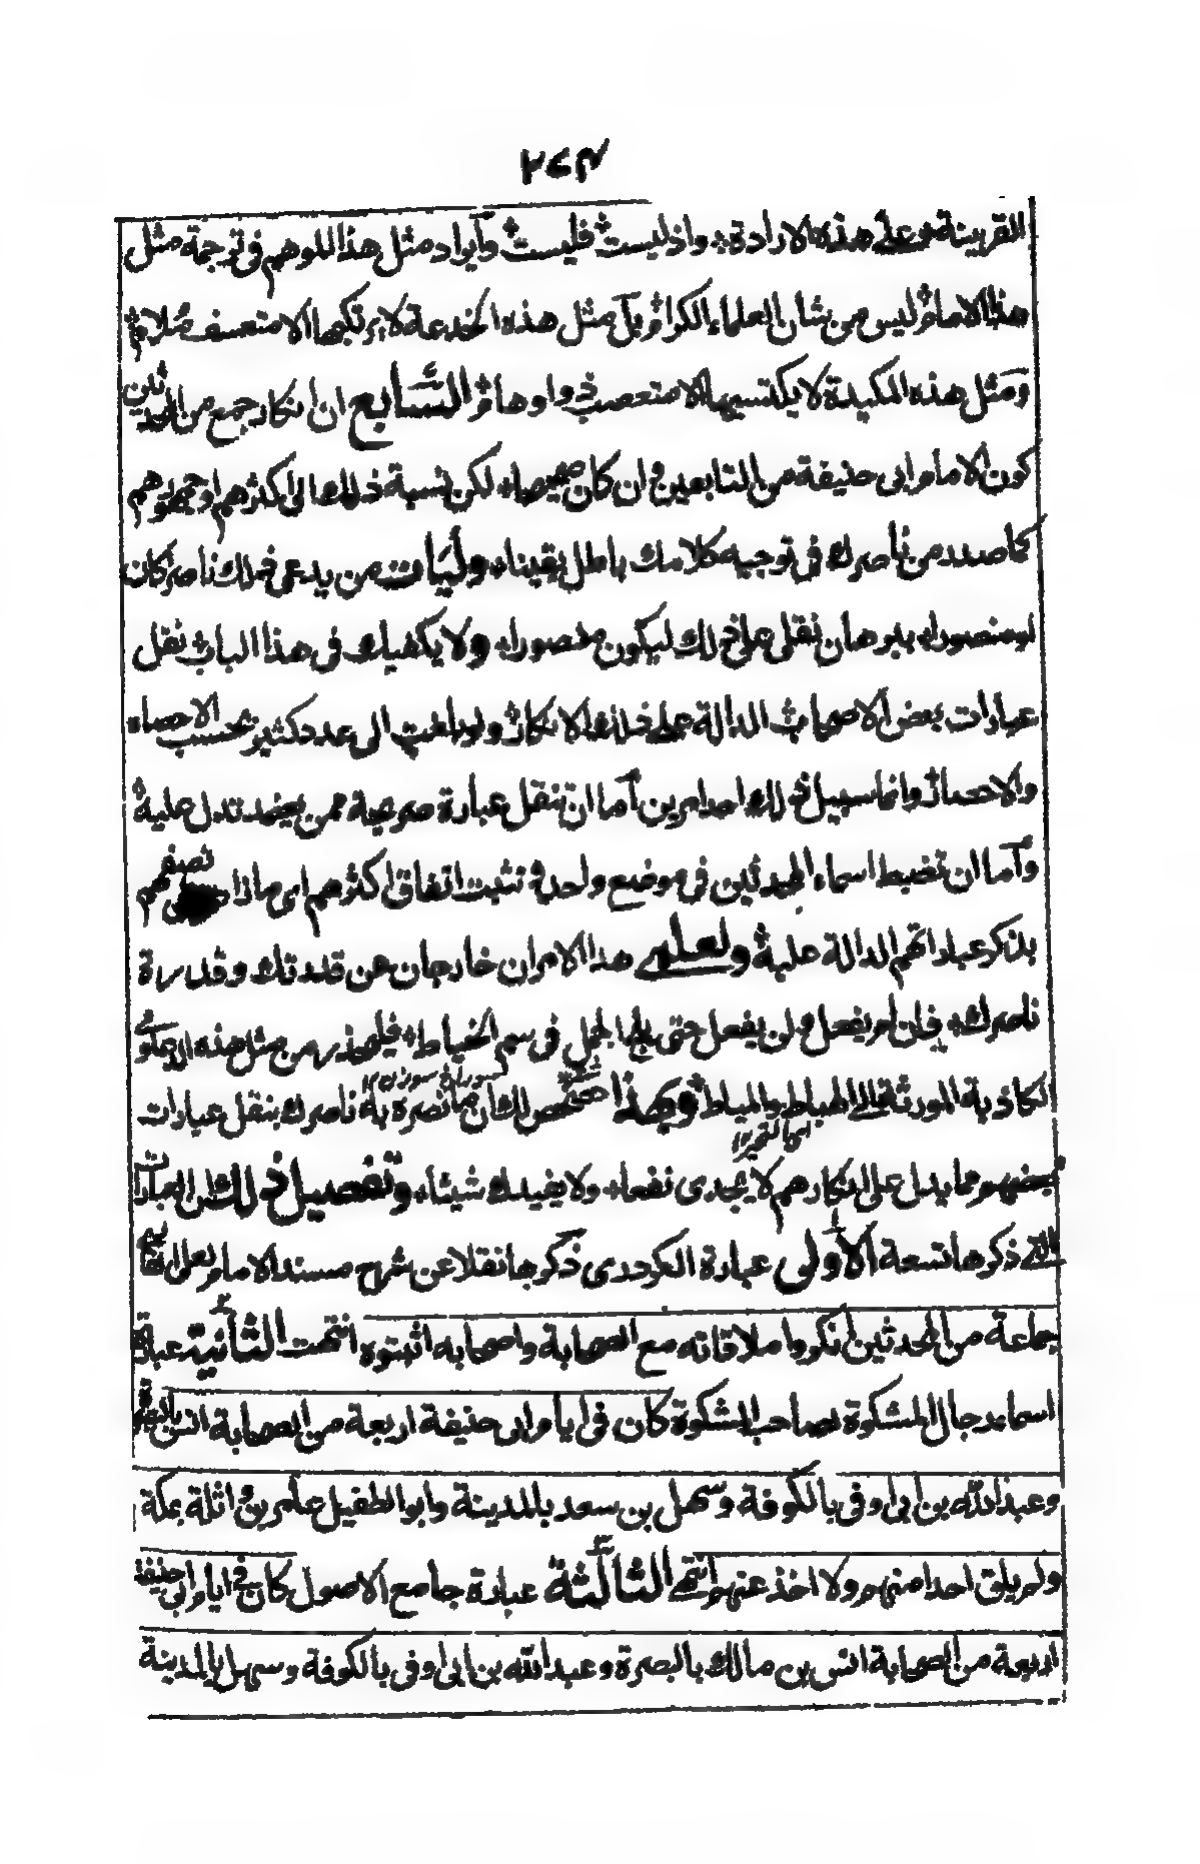 ٢٧٣
القرينة على هذه الارادة واذ ليست فليست وايراد مثل هذا اللوهم فى ترجمة مثل
هذا الامام ليس من شان العلماء الكرام بل مثل هذه الخدعة لا يرتكبها الا متعسف ملام
ومثل هذه المكيدة لا يكتسبها الا متعصب ذو اوهام السابع ان انكار جمع من المحدثين
كون الامام ابى حنيفة من التابعين وان كان صحيحا لكن نسبة ذلك الى اكثرهم او جمهورهم
كما صدر من ناصرك فى توجيه كلامك باطل يقينا وليات من يدعى ذلك ناصرا كان
او منصورا ببرهان نقلى على ذلك ليكون منصورا ولا يكفيك فى هذا الباب نقل
عبارات بعض الاصحاب الدالة على ذلك الانكار ولو بلغت الى عدد كثير بحسب الاحصاء
والاحصار وانما سبيل ذلك احد امرين اما ان تنقل عبارة صريحة ممن يعتمد تدل عليه
واما ان تضبط اسماء المحدثين فى موضع واحد و تثبت اتفاق اكثرهم اى ما زاد على نصفهم
بذكر عباراتهم الدالة عليه ولعلى هذا الامران خارجان عن قدرتك وقدرة
ناصرك فان لم يفعل ولن يفعل حتى يلج الجمل فى سم الخياط فليحذر من مثل هذه الدعاوى
الكاذبة المورثة الى الهباط والمياط وبهذا حصحص لك ان ما نصره به ناصرك بنقل عبارات
سوراخ سوزن ١٢
اى التحير ١٢
بعضهم مما يدل على انكارهم لا يجدى نفعا ولا يفيدك شيئا وتفصيل ذلك ان العبارات
التى ذكرها تسعة الاولى عبارة الكرخى ذكرها نقلا عن شرح مسند الامام لعلى القارى
جماعة من المحدثين انكروا ملاقاته مع الصحابة واصحابه اثبتوه انتهت الثانية عبارة
اسماء رجال المشكوة لصاحب المشكوة كان فى ايام ابى حنيفة اربعة من الصحابة انس بالبصرة
وعبد الله بن ابى اوفى بالكوفة وسهل بن سعد بالمدينة وابو الطفيل عامر بن واثلة بمكة
ولم يلق احدا منهم ولا اخذ عنهم انتهى الثالثة عبارة جامع الاصول كان فى ايام ابى حنيفة
اربعة من الصحابة انس بن مالك بالبصرة وعبد الله بن ابى اوفى بالكوفة وسهل بالمدينة